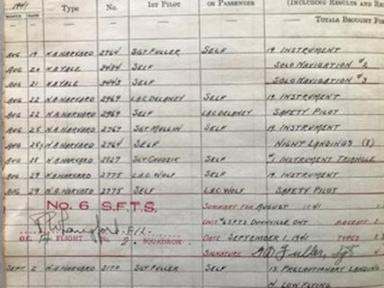 1941 Type No. 1ST PILOT OR PASSENGER (INCLUDING RESULTS AND RE
TOTALS BROUGHT FO
AUG 19 N.A.HARVARD 2764 SGT FULLER SELF 19 INSTRUMENT
AUG N.A.YALE SELF SOLO NAVIGATION #2
AUG 21 N.A.YALE SELF SOLO NAVIGATION #3
AUG 22 N.A.HARVARD 2969 LAC DELANEY SELF 19. INSTRUMENT
AUG 22 N.A.HARVARD 2969 SELF LAC DELANEY SAFETY PILOT
AUG 25 N.A.HARVARD 2767 SGT SELF 19. INSTRUMENT
AUG N.A.HARVARD 2764 SELF NIGHT LANDINGS (8)
AUG N.A.HARVARD SGT SELF INSTRUMENT TRIANGLE
AUG 29 N.A.HARVARD 2775 LAC WOLF SELF 19. INSTRUMENT
AUG 29 N.A.HARVARD 2775 SELF LAC WOLF SAFETY PILOT
No. 6 S.F.T.S. SUMMARY FOR AUGUST 1941
UNIT #6 SFTS DUNNVILLE ONT
FLIGHT NO. 2. SQUADRON DATE SEPTEMBER 1 1941 TYPES
SIGNATURE Fuller, Sgt
SEPT. N.A.HARVARD SGT FULLER SELF PRECAUTIONARY LANDING
LOW FLYING